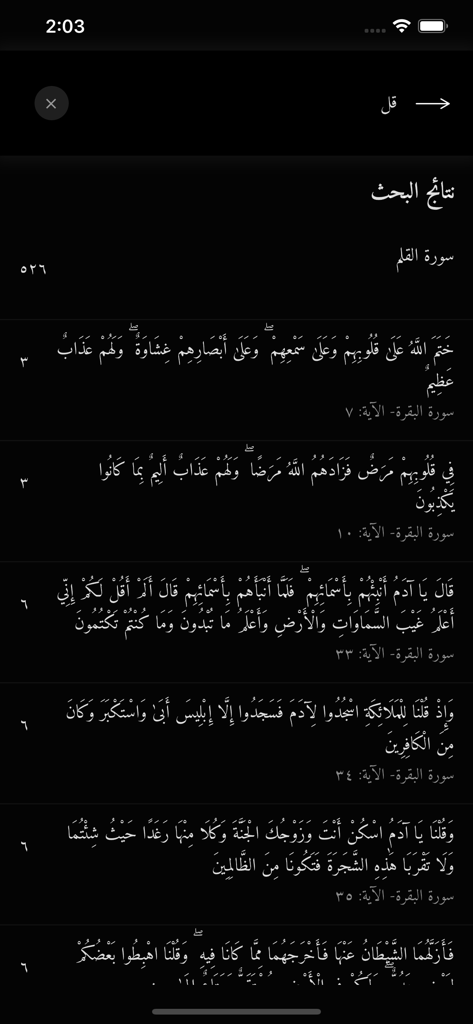 2:03
قل
نتائج البحث
سورة القلم
٥٢٦
خَتَمَ اللَّهُ عَلَىٰ قُلُوبِهِمْ وَعَلَىٰ سَمْعِهِمْ ۖ وَعَلَىٰ أَبْصَارِهِمْ غِشَاوَةٌ ۖ وَلَهُمْ عَذَابٌ
٣
عَظِيمٌ
سورة البقرة- الآية: ٧
فِي قُلُوبِهِمْ مَرَضٌ فَزَادَهُمُ اللَّهُ مَرَضًا ۖ وَلَهُمْ عَذَابٌ أَلِيمٌ بِمَا كَانُوا
٣
يَكْذِبُونَ
سورة البقرة- الآية: ١٠
قَالَ يَا آدَمُ أَنْبِئْهُمْ بِأَسْمَائِهِمْ ۖ فَلَمَّا أَنْبَأَهُمْ بِأَسْمَائِهِمْ قَالَ أَلَمْ أَقُلْ لَكُمْ إِنِّي
٦
أَعْلَمُ غَيْبَ السَّمَاوَاتِ وَالْأَرْضِ وَأَعْلَمُ مَا تُبْدُونَ وَمَا كُنْتُمْ تَكْتُمُونَ
سورة البقرة- الآية: ٣٣
وَإِذْ قُلْنَا لِلْمَلَائِكَةِ اسْجُدُوا لِآدَمَ فَسَجَدُوا إِلَّا إِبْلِيسَ أَبَىٰ وَاسْتَكْبَرَ وَكَانَ
٦
مِنَ الْكَافِرِينَ
سورة البقرة- الآية: ٣٤
وَقُلْنَا يَا آدَمُ اسْكُنْ أَنْتَ وَزَوْجُكَ الْجَنَّةَ وَكُلَا مِنْهَا رَغَدًا حَيْثُ شِئْتُمَا
٦
وَلَا تَقْرَبَا هَٰذِهِ الشَّجَرَةَ فَتَكُونَا مِنَ الظَّالِمِينَ
سورة البقرة- الآية: ٣٥
فَأَزَلَّهُمَا الشَّيْطَانُ عَنْهَا فَأَخْرَجَهُمَا مِمَّا كَانَا فِيهِ ۖ وَقُلْنَا اهْبِطُوا بَعْضُكُمْ
٦